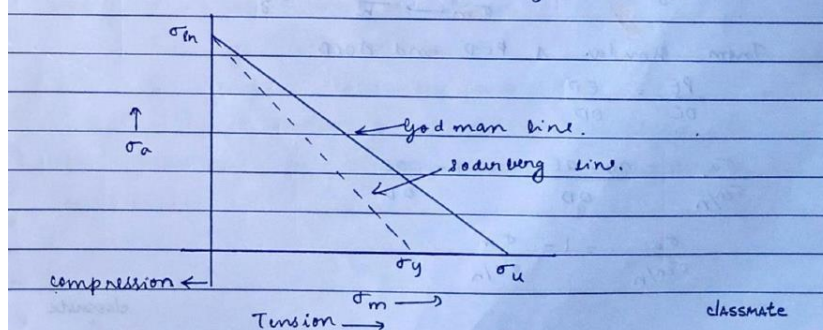 σen
↑
σa
Godman line.
soderberg line.
σy
σu
compression ←
σm →
Tension →
classmate